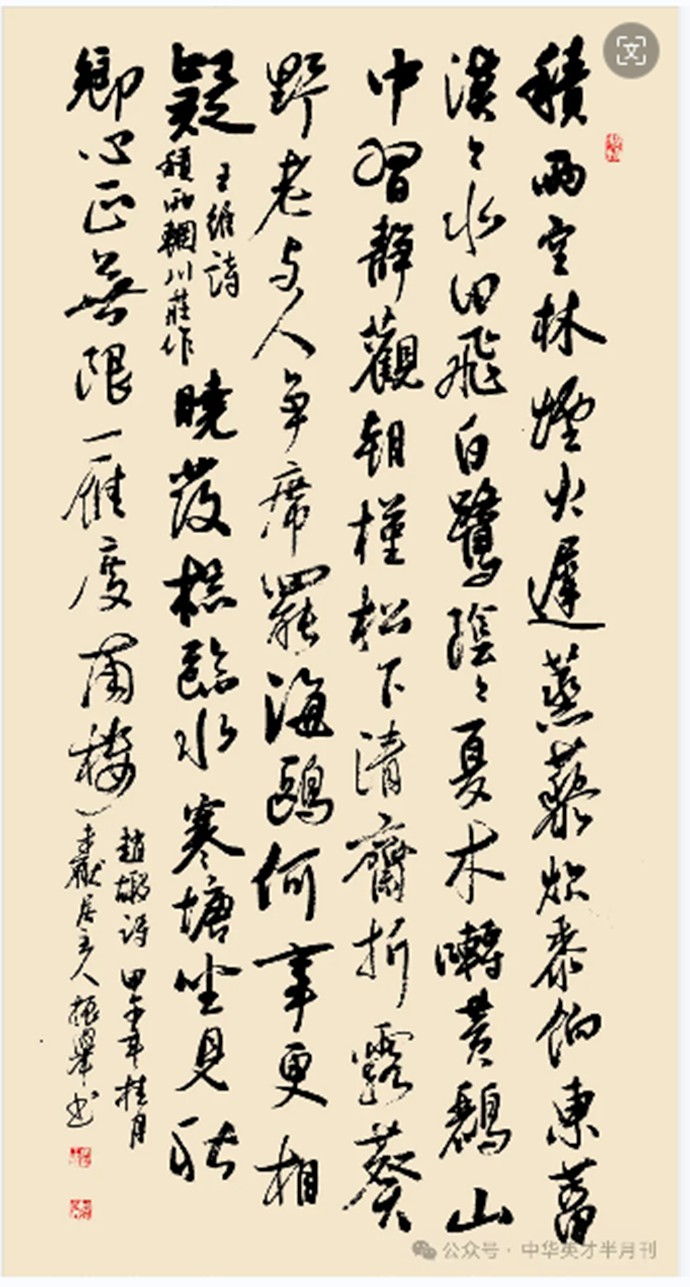 積雨空林煙火遲蒸藜炊黍餉東菑
漠〻水田飛白鷺陰〻夏木囀黃鸝山
中習靜觀朝槿松下清齋折露葵
野老与人爭席罷海鷗何事更相
疑
王維詩
積雨輞川莊作
曉發梳臨水寒塘坐見秋
鄉心正無限一雁度南樓
趙嘏詩甲午年桂月
居主人振舉书
公众号·中华英才半月刊